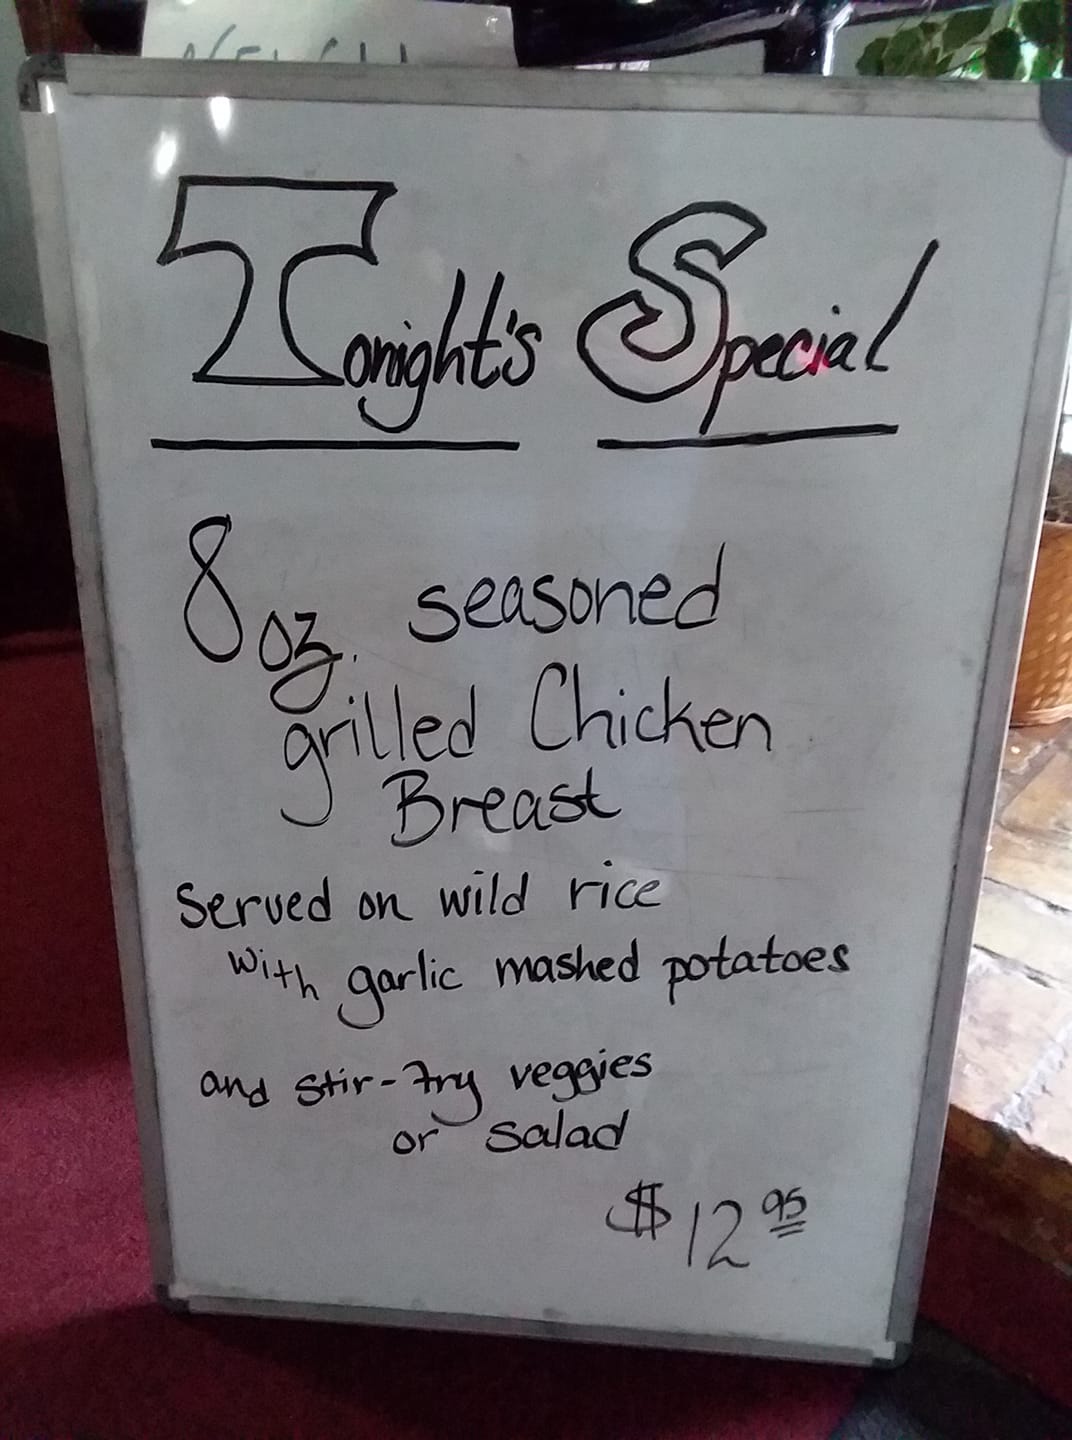 Tonight's Special
8 oz. seasoned
grilled Chicken
Breast
Served on wild rice
with garlic mashed potatoes
and stir-fry veggies
or salad
$12 95